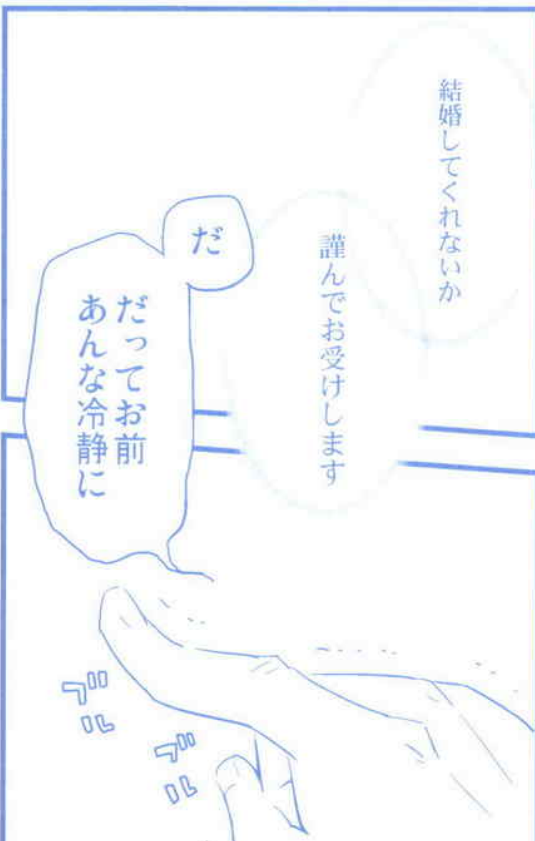 結婚してくれないか
謹んでお受けします
だ
だってお前
あんな冷静に
ブル
ブル